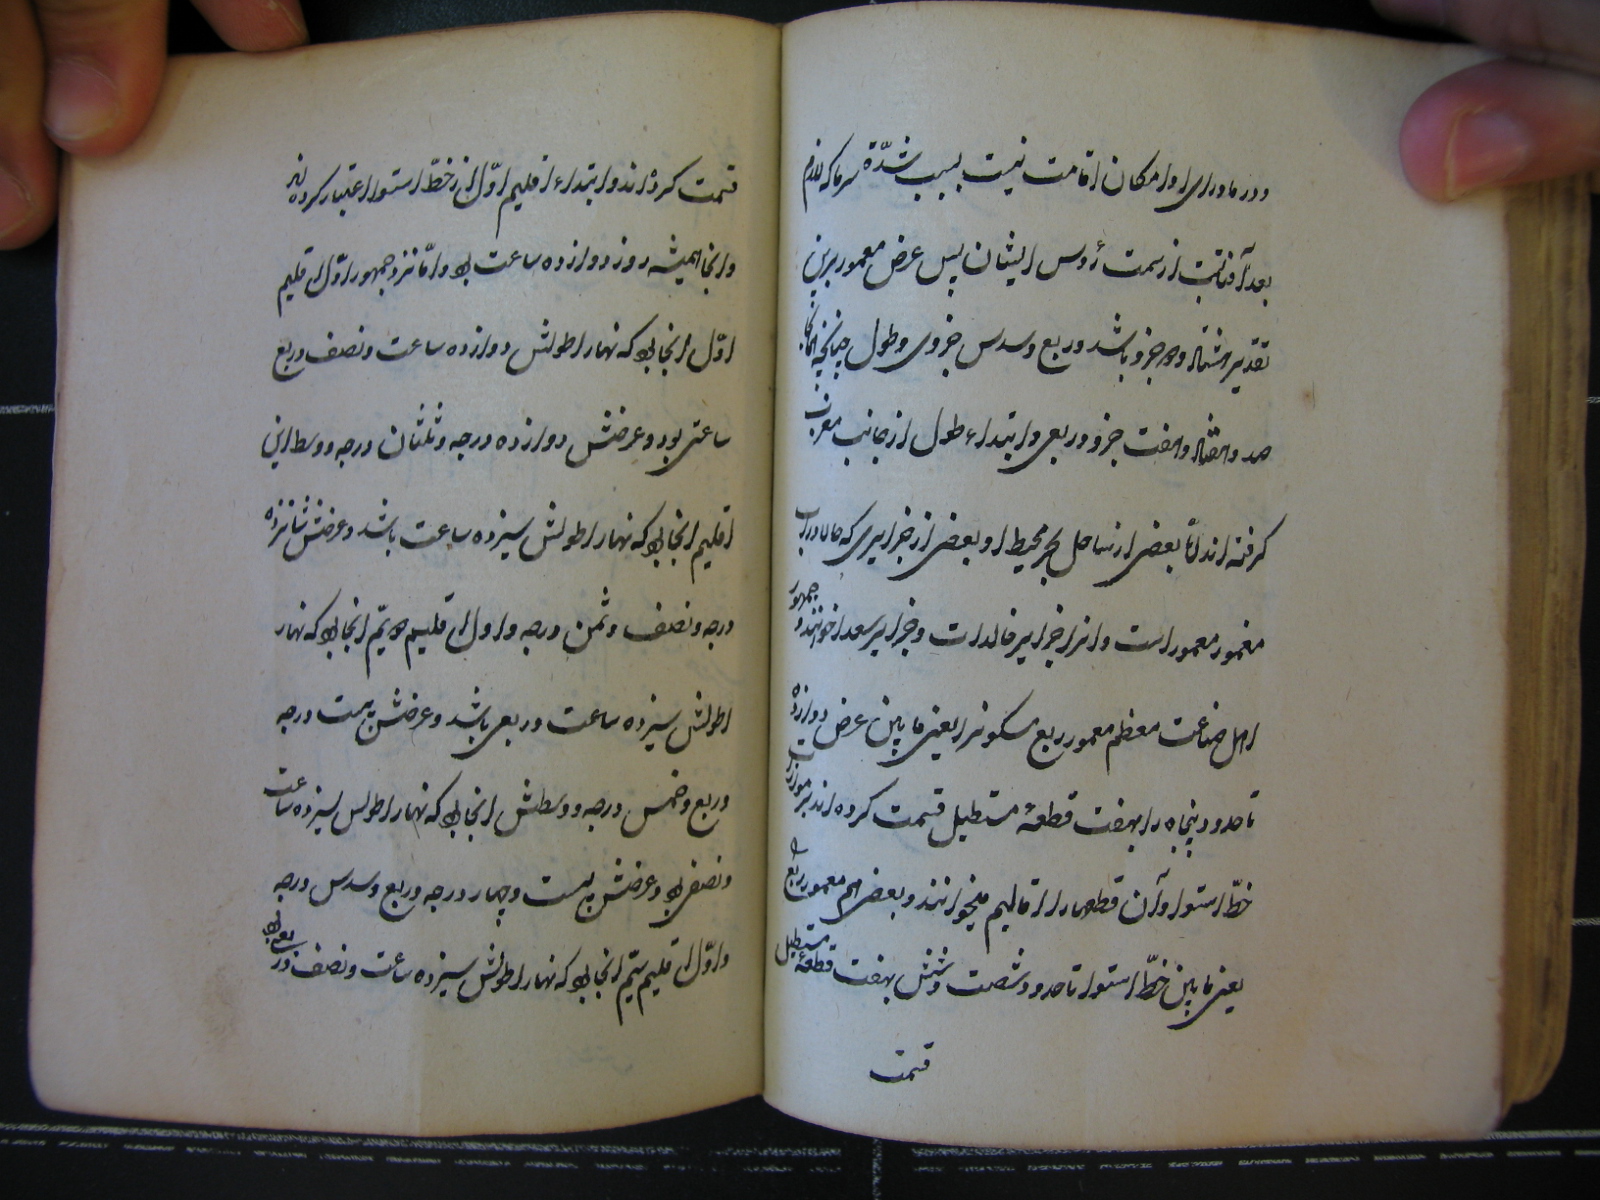 و در ماورای او امکان اقامت نیست بسبب شدّة سرما که لازم
بعد آفتابست از سمت رٔوس ایشان پس عرض معمور برین
تقدیر هشتاد و دو جزو باشد و ربع و سدس جزوی و طول چنانچه
صد و هفتاد و هفت جزو و ربعی و ابتداء طول از جانب مغرب
کرفته اند امّا بعضی از ساحل بحر محیط و بعضی از جزایری که حالا در آب
مغمور معمور است و انرا جزایر خالدات و جزایر سعدا خوانند و جمهور
اهل صناعت معظم معمور ربع مسکونرا یعنی ما بین عرض دوازده
تا حدود پنجاه را بهفت قطعهٔ مستطیل قسمت کرده اند بر موازات
خطّ استوا و آن قطعها را اقالیم میخوانند و بعضی هم معمور ربع را
یعنی ما بین خطّ استوا تا حدود شصت و شش بهفت قطعهٔ مستطیل
قسمت
قسمت کرده اند و ابتداء اقلیم اوّل از خطّ استوا اعتبار کرده اند
و انجا همیشه روز دوازده ساعت بود و امّا نزد جمهور اوّل اقلیم
اوّل انجا بود که نهار اطولش دوازده ساعت و نصف و ربع
ساعتی بود و عرضش دوازده درجه و ثلثان درجه و وسط این
اقلیم انجا بود که نهار اطولش سیزده ساعت باشد و عرضش شانزده
درجه و نصف و ثمن درجه و اول اقلیم دویّم انجا بود که نهار
اطولش سیزده ساعت و ربعی باشد و عرضش بیست درجه
و ربع و خمس درجه و وسطش انجا بود که نهار اطولش سیزده ساعت
و نصفی بود و عرضش بیست و چهار درجه و ربع و سدس درجه
و اوّل اقلیم سیّم انجا بود که نهار اطولش سیزده ساعت و نصف و ربع بود